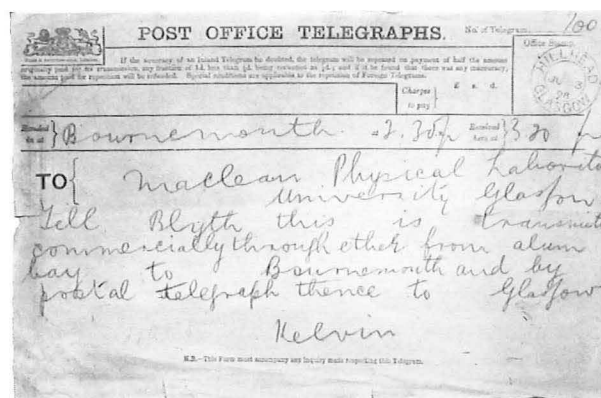 POST OFFICE TELEGRAPHS.
No. of Telegram
100
If the accuracy of an Inland Telegram be doubted, the telegram will be repeated on payment of half the amount
originally paid for its transmission, any fraction of 1d. less than ½d. being reckoned as ½d.; and if it be found that there was any inaccuracy,
the amount paid for repetition will be refunded. Special conditions are applicable to the repetition of Foreign Telegrams.
Office Stamp.
HILLHEAD
GLASGOW
Charges to pay
£ s. d.
Handed in at
Bournemouth 2.30p
Received here at
3.20 p
TO
Maclean Physical Laborato
University Glasgow
Tell Blyth this is transmit
commercially through ether from alum
bay to Bournemouth and by
postal telegraph thence to Glasgow
Kelvin
N.B.—This Form must accompany any inquiry made respecting this Telegram.